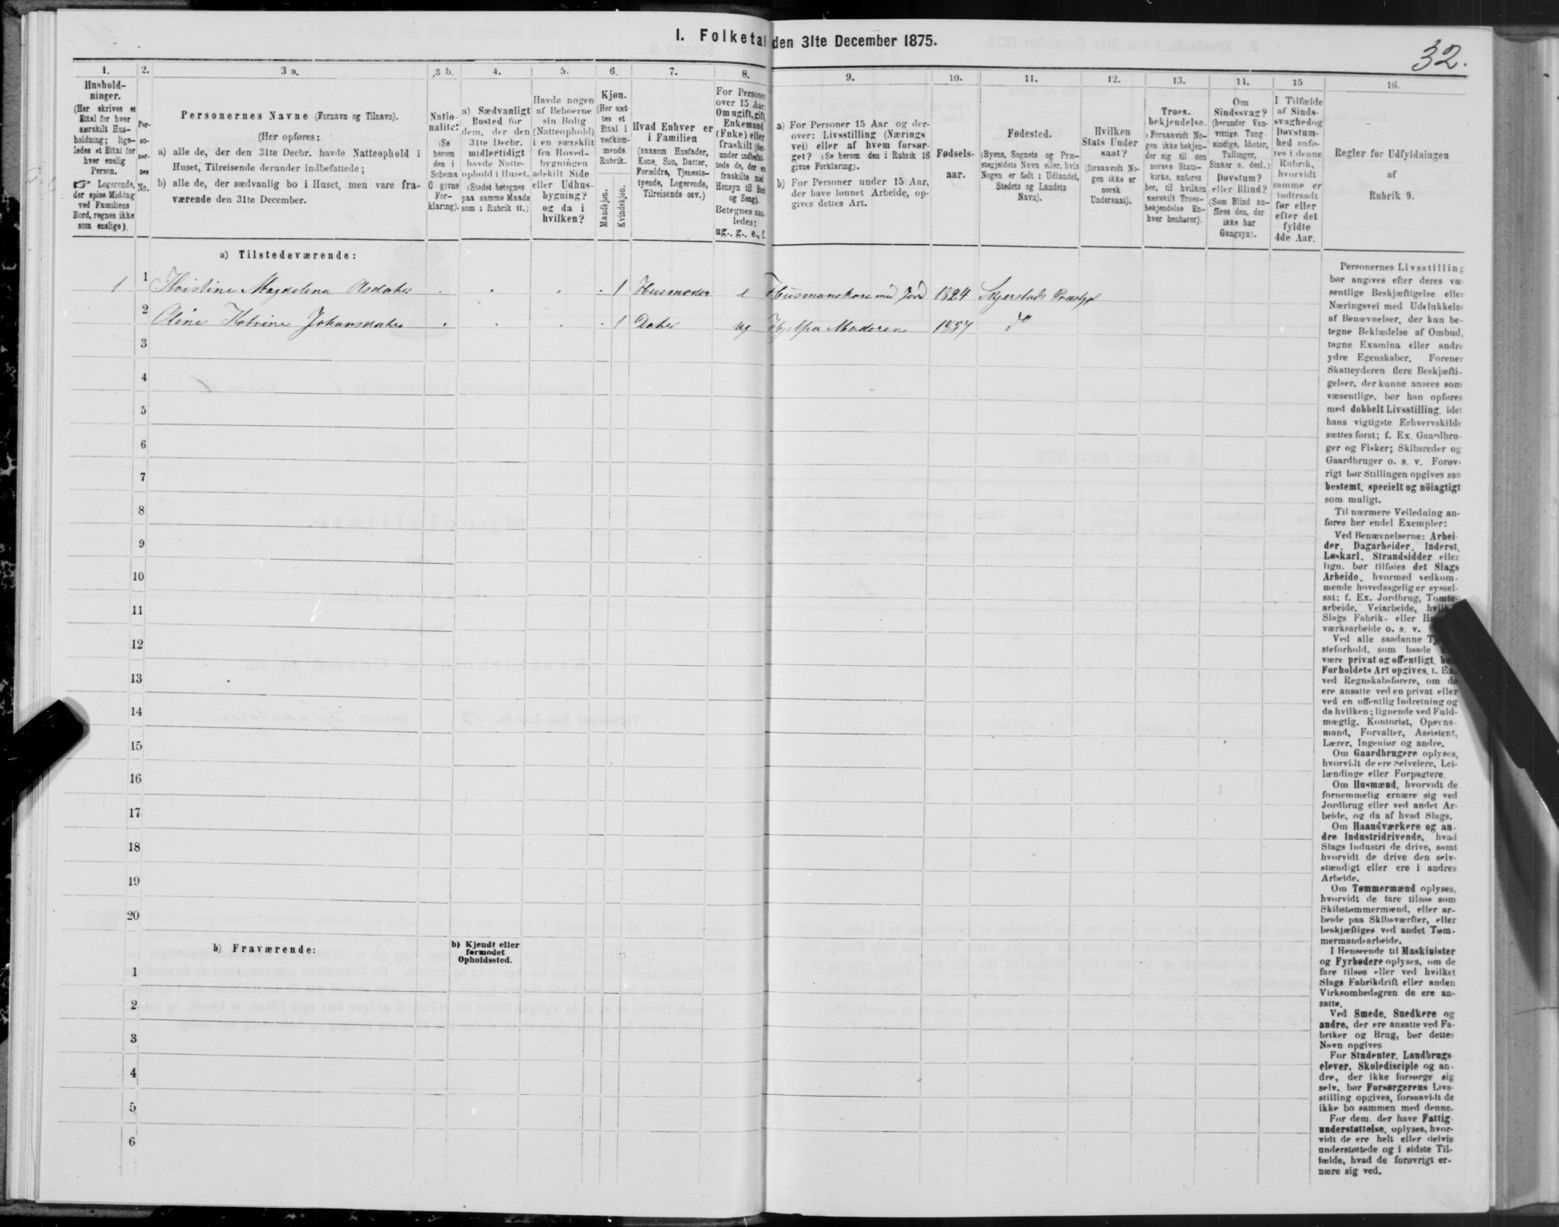 I. Folketal den 31te December 1875.
32.
1. 2. 3 a. 3 b. 4. 5. 6. 7. 8. 9. 10. 11. 12. 13. 14. 15 16.
Hushold-
ninger.
(Her skrives et
Ettal for hver
særskilt Hus-
holdning; lige-
ledes et Ettal for
hver enslig
Person.
Logerende,
der spise Middag
ved Familiens
Bord, regnes ikke
som enslige).
Per-
so-
ner-
nes
No.
Personernes Navne (Fornavn og Tilnavn).
(Her opføres;
a) alle de, der den 31te Decbr. havde Natteophold i
Huset, Tilreisende derunder indbefattede;
b) alle de, der sædvanlig bo i Huset, men vare fra-
værende den 31te December.
Natio-
nalitet
(Se
herom
den i
Schema
O givne
For-
klaring).
a) Sædvanligt
Bosted for
dem, der den
31te Decbr.
midlertidigt
havde Natte-
ophold i Huset.
(Stedet betegnes
paa samme Maade
som i Rubrik 11.)
Havde nogen
af Beboerne
sin Bolig
(Natteophold)
i en særskilt
fra Hoved-
bygningen
adskilt Side
eller Udhus-
bygning?
og da i
hvilken?
Kjøn.
(Her sæt-
tes et
Ettal i
vedkom-
mende
Rubrik.
Mandkjøn.
Kvindekjøn.
Hvad Enhver er
i Familien
(saasom Husfader,
Kone, Søn, Datter,
Forældre, Tjeneste-
tyende, Logerende,
Tilreisende osv.)
For Personer
over 15 Aar:
Om ugift, gift,
Enkemand
(Enke) eller
fraskilt
Betegnes saa-
ledes:
ug., g., e., f.
a) For Personer 15 Aar og der-
over: Livsstilling (Nærings
vei) eller af hvem forsør-
get? (Se herom den i Rubrik 16
givne Forklaring).
b) For Personer under 15 Aar,
der have lønnet Arbeide, op-
gives dettes Art.
Fødsels-
aar.
Fødested.
(Byens, Sognets og Præ-
stegjeldets Navn eller, hvis
Nogen er født i Udlandet,
Stedets og Landets
Navn).
Hvilken
Stats Under
saat?
(forsaavidt No-
gen ikke er
norsk
Undersaat).
Troes-
bekjendelse.
(Forsaavidt No-
gen ikke bekjen-
der sig til den
norske Stats-
kirke, anføres
her, til hvilken
særskilt Troes-
bekjendelse En-
hver henhører).
Om
Sindssvag?
(herunder Van-
vittige, Tung-
sindige, Idioter,
Tullinger,
Sinker o. desl.)
Døvstum?
eller Blind?
(Som Blind an-
føres den, der
ikke har
Gangsyn).
I Tilfælde
af Sinds-
svaghed og
Døvstum-
hed anfø-
res i denne
Rubrik,
hvorvidt
samme er
indtraadt
før eller
efter det
fyldte
4de Aar.
Regler for Udfyldningen
af
Rubrik 9.
a) Tilstedeværende:
1 1 Kristine Magdelena Asdater 1 Husmoder e Husmandskone med Jord 1824 Søgerstads Præstgj
2 Oline Katrine Johansdater 1 Dater ug Hjelpa Moderen 1857 do
3
4
5
6
7
8
9
10
11
12
13
14
15
16
17
18
19
20
b) Fraværende:
b) Kjendt eller
formodet
Opholdssted.
1
2
3
4
5
6
Personernes Livsstilling
bør angives efter deres væ-
sentlige Beskjæftigelse eller
Næringsvei med Udelukkelse
af Benævnelser, der kun be-
tegne Beklædelse af Ombud,
tagne Examina eller andre
ydre Egenskaber. Forener
Skatteyderen flere Beskjæfti-
gelser, der kunne ansees som
væsentlige, bør han opføres
med dobbelt Livsstilling, idet
hans vigtigste Erhvervskilde
sættes først; f. Ex. Gaardbru-
ger og Fisker; Skibsreder og
Gaardbruger o. s. v. Forøv-
rigt bør Stillingen opgives saa
bestemt, specielt og nöiagtigt
som muligt.
Til nærmere Veiledning an-
føres her endel Exempler:
Ved Benævnelserne: Arbei-
der, Dagarbeider, Inderst,
Løskarl, Strandsidder eller
lign. bør tilføies det Slags
Arbeide, hvormed vedkom-
mende hovedsagelig er syssel-
sat; f. Ex. Jordbrug, Tomte-
arbeide, Veiarbeide,
Slags Fabrik- eller
værksarbeide o. s. v.
Ved alle saadanne
steforhold, som baade
være privat og offentligt,
Forholdets Art opgives, f. Ex.
ved Regnskabsførere, om de
ere ansatte ved en privat eller
ved en offentlig Indretning og
da hvilken; lignende ved Fuld-
mægtig, Kontorist, Opsyns-
mand, Forvalter, Assistent,
Lærer, Ingeniør og andre.
Om Gaardbrugere oplyses,
hvorvidt de ere Selveiere, Lei-
lændinge eller Forpagtere.
Om Husmænd, hvorvidt de
fornemmelig ernære sig ved
Jordbrug eller ved andet Ar-
beide, og da af hvad Slags.
Om Haandværkere og an-
dre Industridrivende, hvad
Slags Industri de drive, samt
hvorvidt de drive den selv-
stændigt eller ere i andres
Arbeide.
Om Tømmermænd oplyses,
hvorvidt de fare tilsøs som
Skibstømmermænd, eller ar-
beide paa Skibsværfter, eller
beskjæftiges ved andet Tøm-
mermandsarbeide.
I Henseende til Maskinister
og Fyrbødere oplyses, om de
fare tilsøs eller ved hvilket
Slags Fabrikdrift eller anden
Virksomhedsgren de ere an-
satte.
Ved Smede, Snedkere og
andre, der ere ansatte ved Fa-
briker og Brug, bør dettes
Navn opgives
For Studenter, Landbrugs-
elever, Skoledisciple og an-
dre, der ikke forsørge sig
selv, bør Forsørgerens Livs-
stilling opgives, forsaavidt de
ikke bo sammen med denne.
For dem, der have Fattig-
understøttelse, oplyses, hvor-
vidt de ere helt eller delvis
understøttede og i sidste Til-
fælde, hvad de forøvrigt er-
nære sig ved.